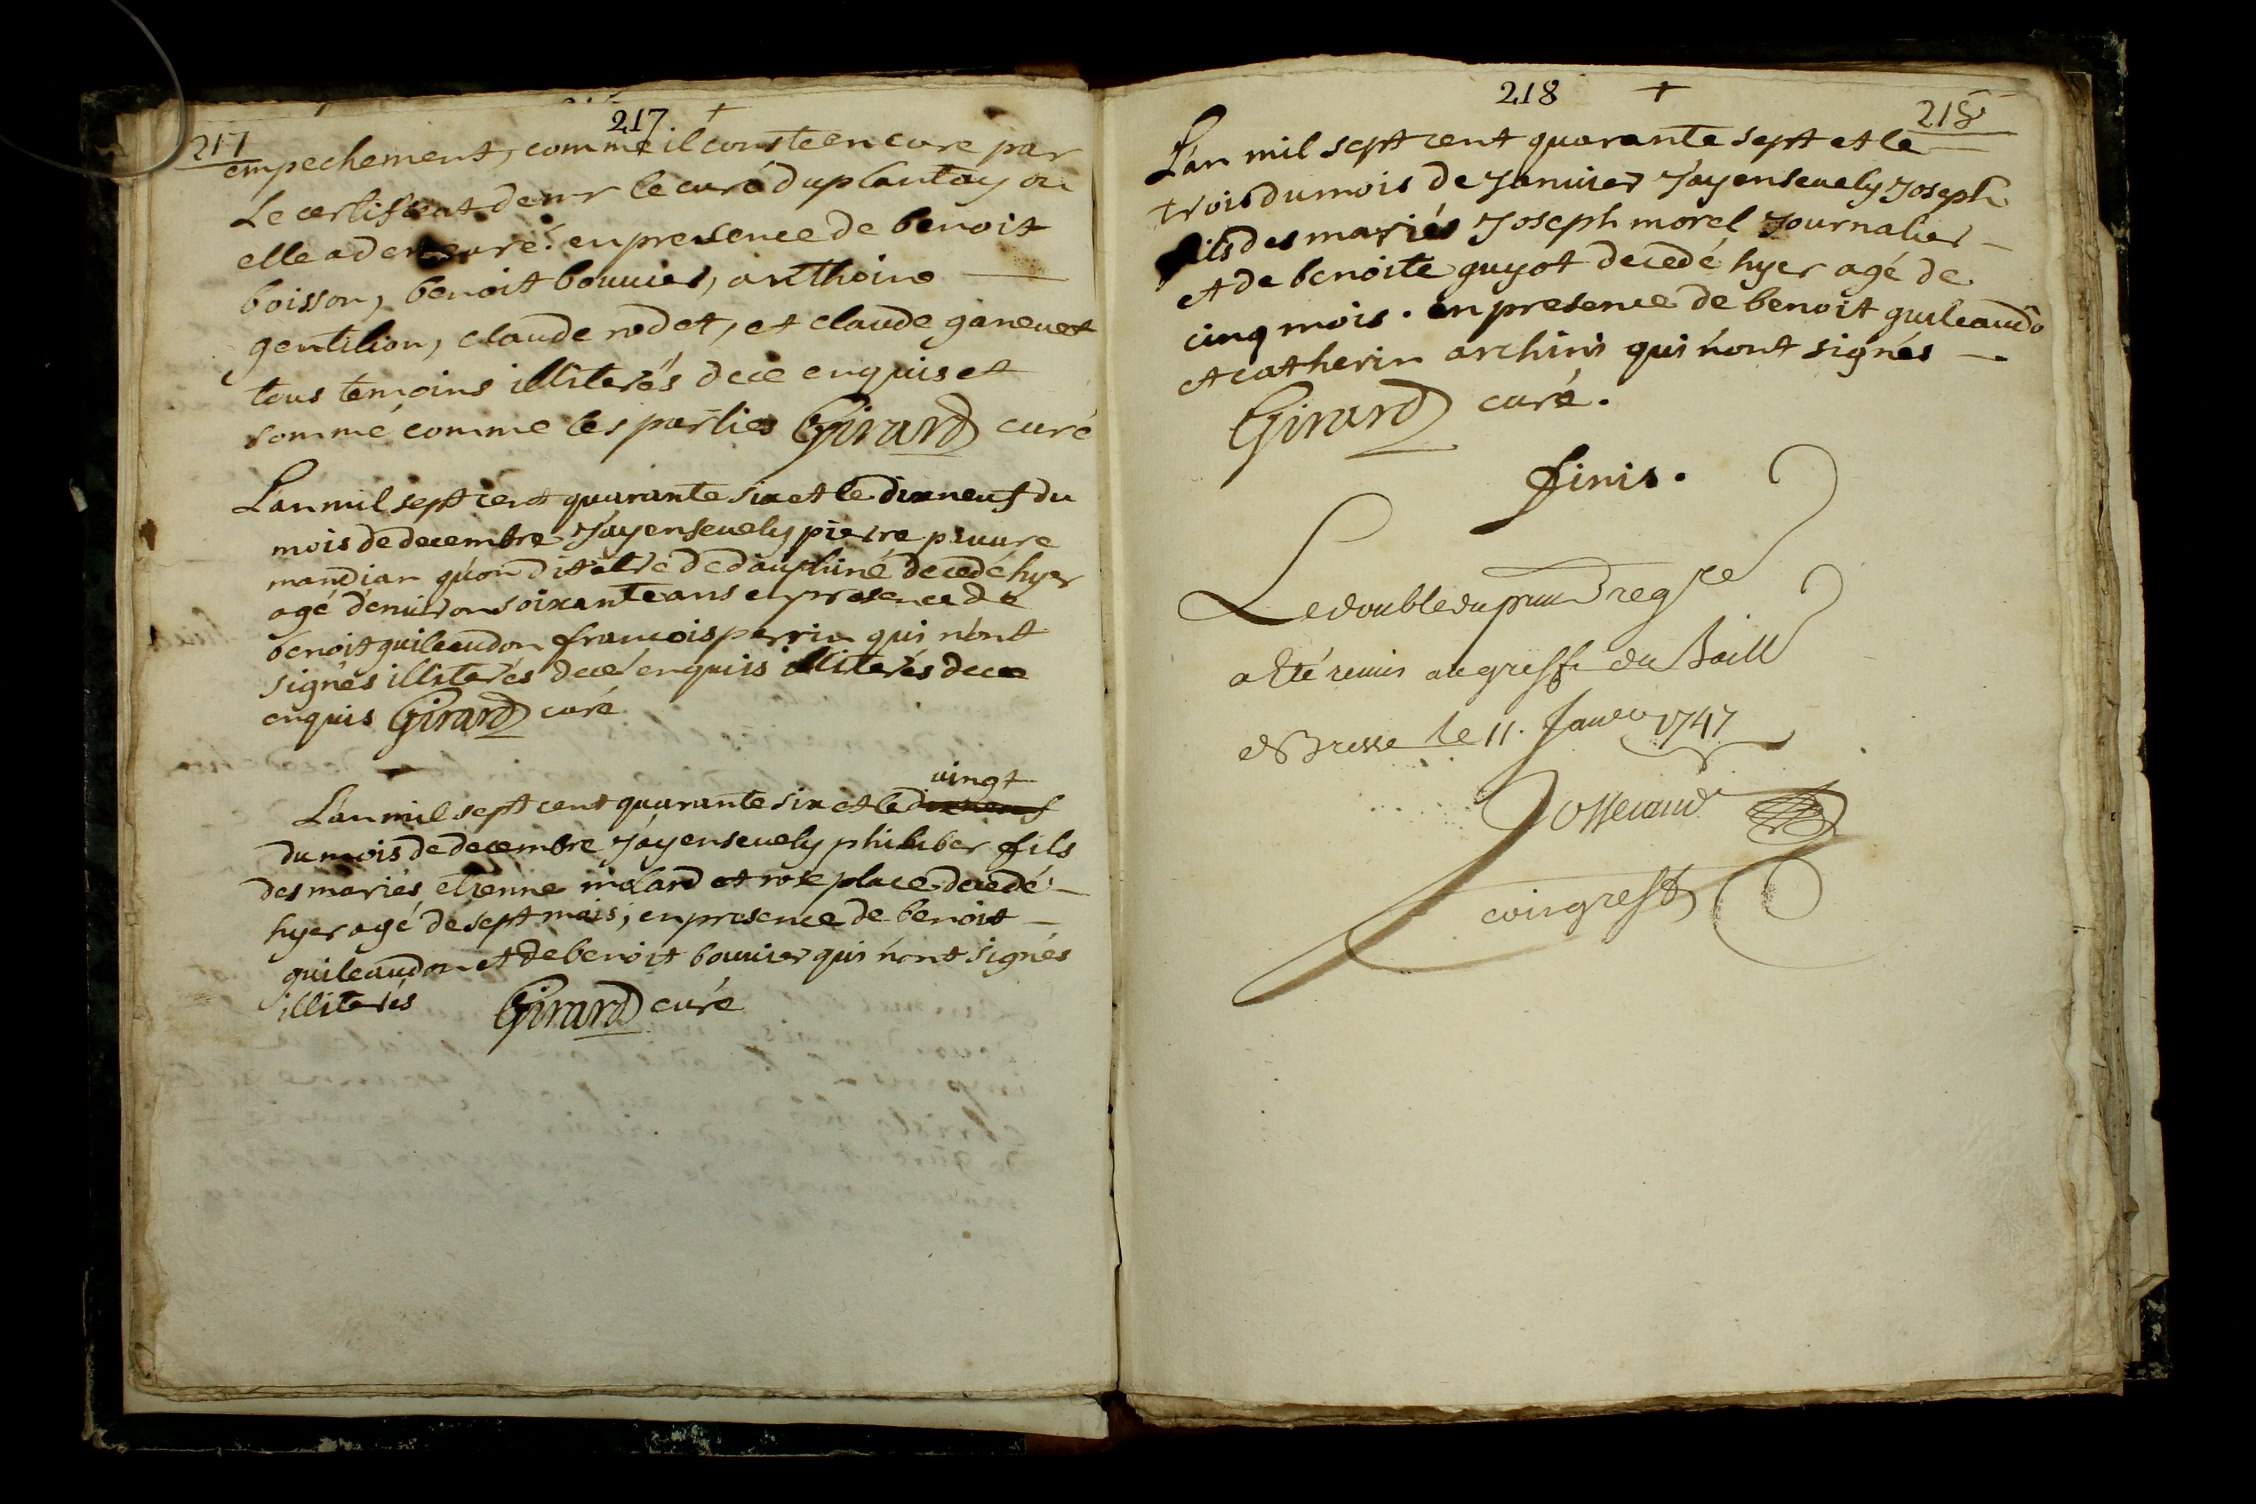 217. +
217
empechement, comme il conste encore par
Le certificat de mr le curé du plantay ou
elle a demeuré. en presence de benoit
boisson, benoit bouuier, anthoine
gentilion, claude rodet, et claude ganeuet
tous temoins illiterés de ce enquis et
sommé comme les parties Girard curé
L'an mil sept cent quarante six et le dixneuf du
mois de decembre J'ay enseuely pierre pauure
mandian qu'on dit etre de dauphiné decedé hyer
agé d'enuiron soixante ans en presence de
benoit guileaudon francois perrin qui n'ont
signés illiterés de ce enquis illiterés de ce
enquis Girard curé
vingt
L'an mil sept cent quarante six et le dixneuf
du mois de decembre J'ay enseuely philiber fils
des mariés etienne molard et rose place decedé
hyer agé de sept mois; en presence de benoit
guileaudon et de benoit bouuier qui n'ont signés
illiterés Girard curé
218 +
218
L'an mil sept cent quarante sept et le
trois du mois de Januier J'ay enseuely Joseph
fils des mariés Joseph morel Journalier
et de benoite guyot decedé hyer agé de
cinq mois. en presence de benoit guileaudo
et catherin archini qui n'ont signés
Girard curé.
finis.
Le double du pnt regre
a Eté remis au greffe du Baill
de Bresse le 11. Januer 1747
Josserand
com greff